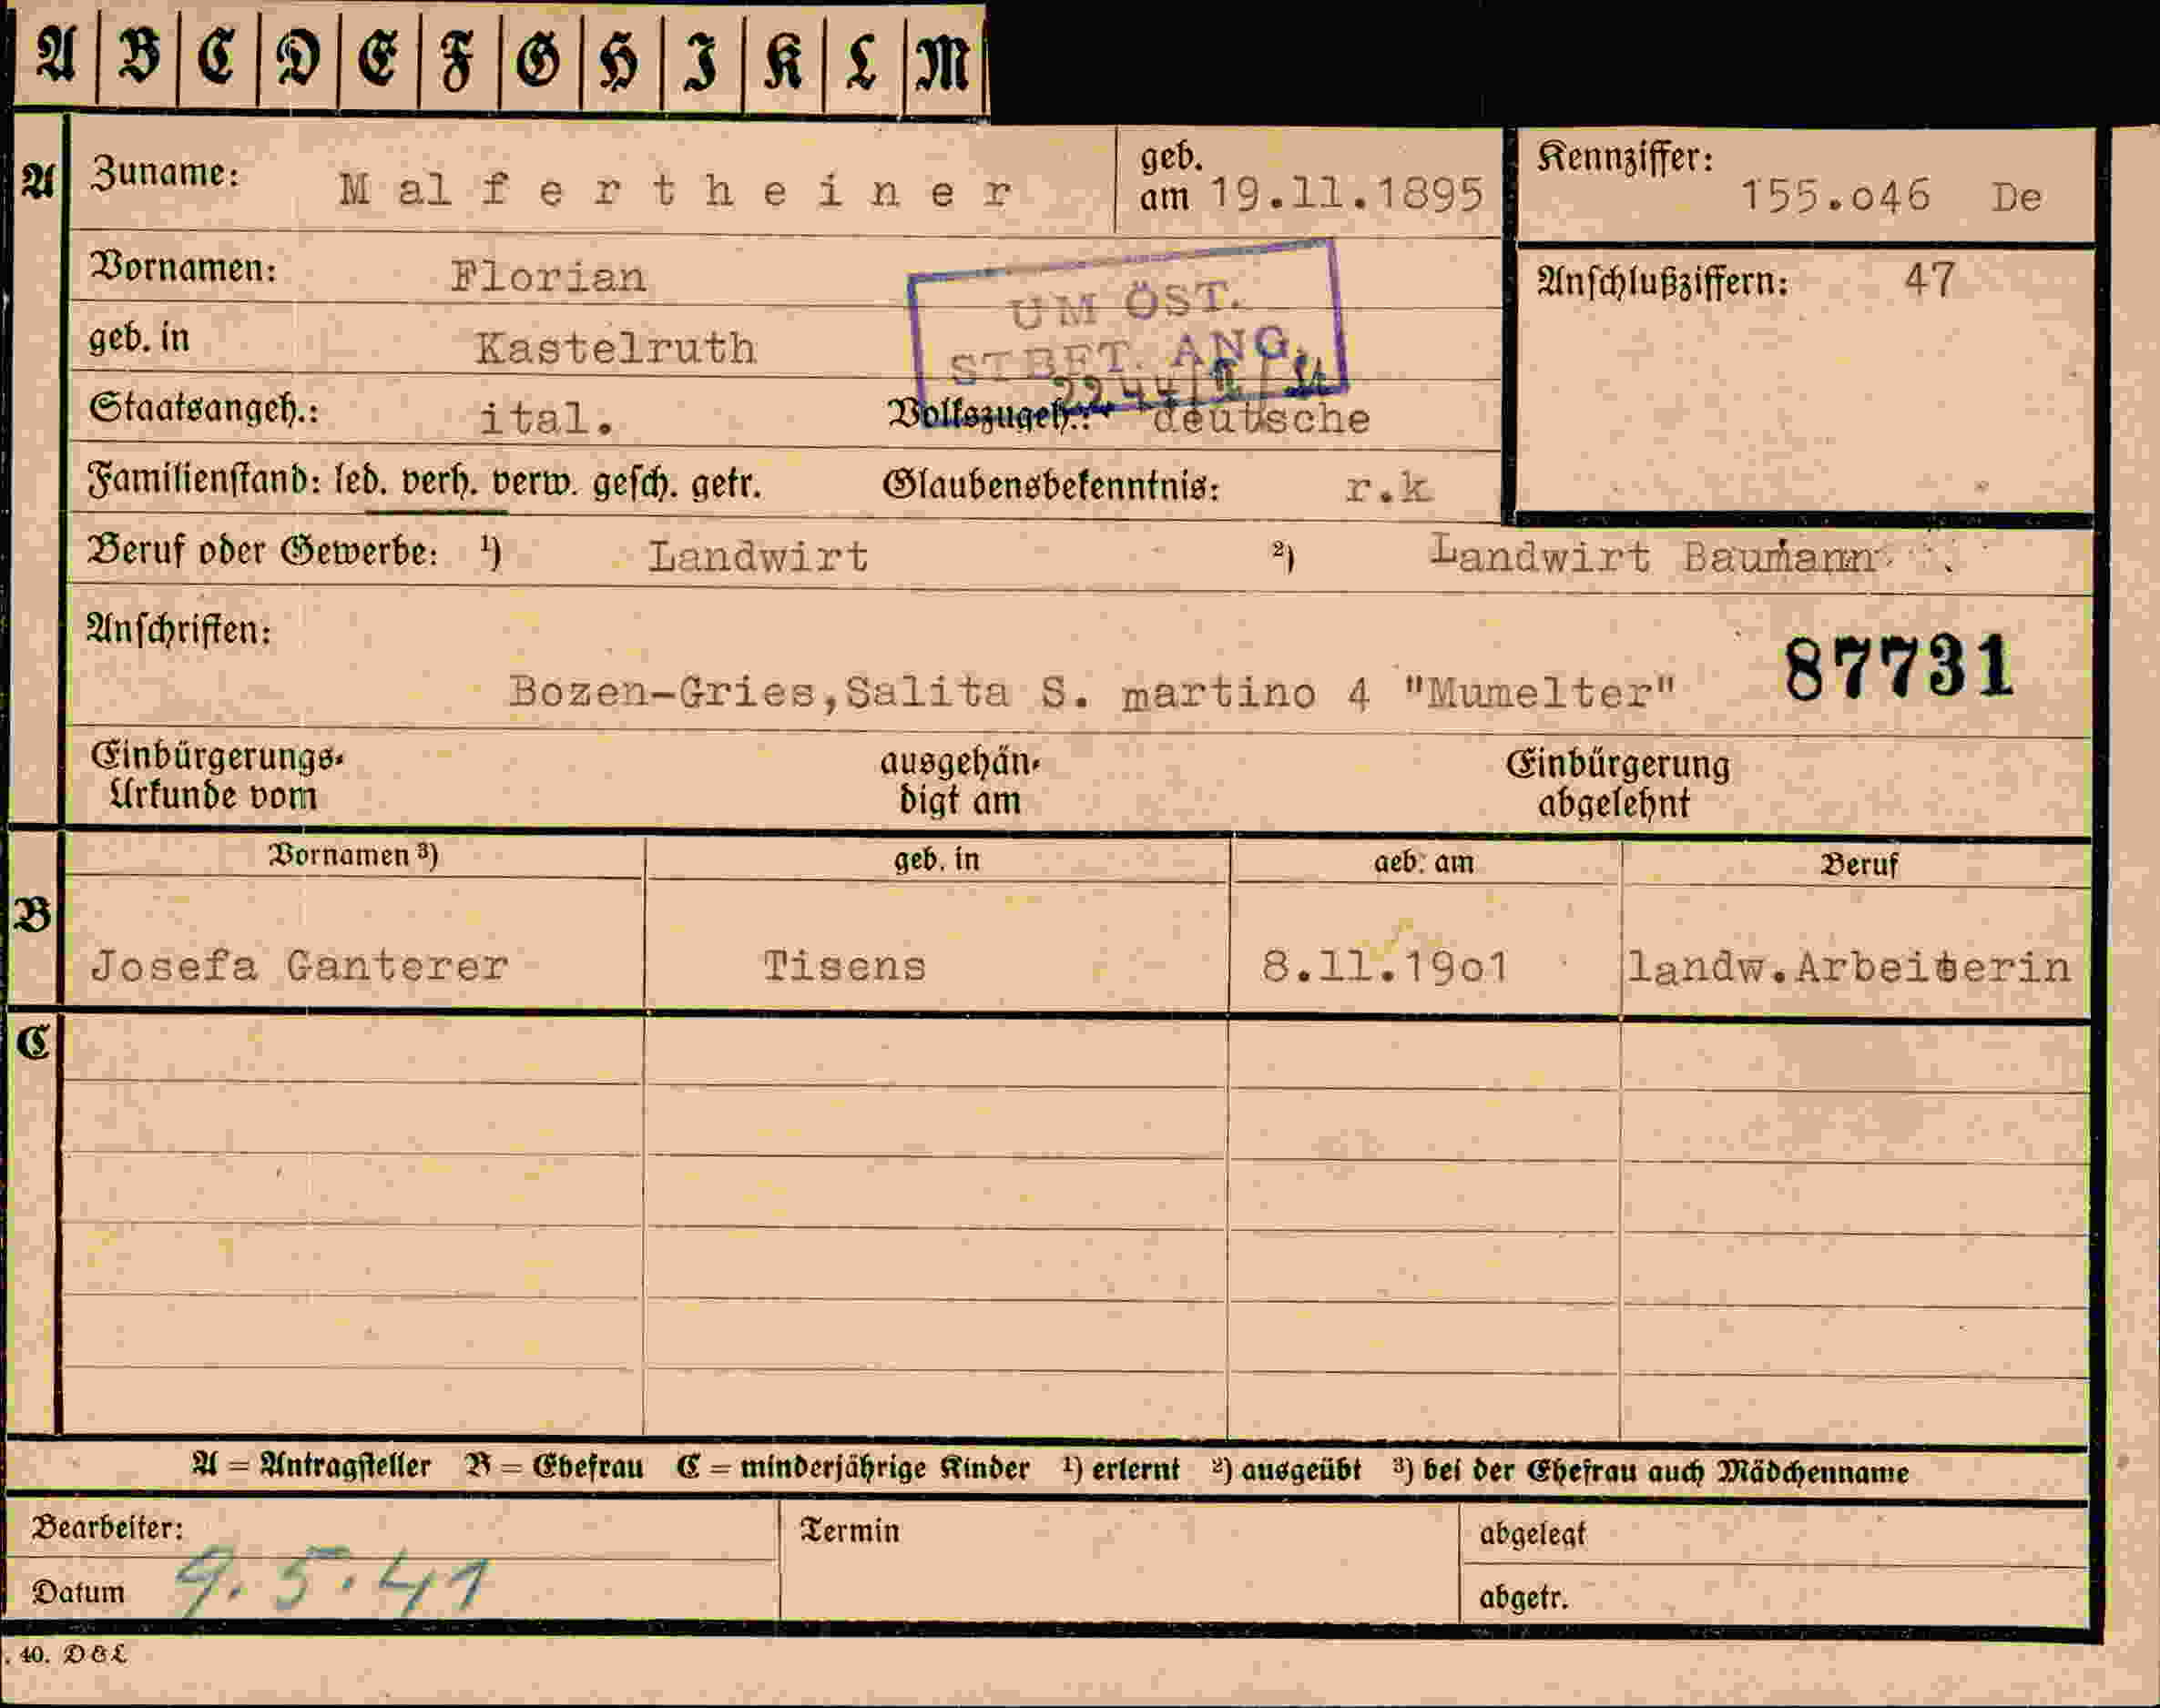 A B C D E F G H I K L M
A Zuname: Malfertheiner geb. am 19.11.1895 Kennziffer: 155.o46 De
Vornamen: Florian Anschlußziffern: 47
UM ÖST.
geb. in Kastelruth
ST ANG.
Staatsangeh.: ital. Volkszugeh.: deutsche
Familienstand: led. verh. verw. gesch. getr. Glaubensbekenntnis: r.k
Beruf oder Gewerbe: ¹) Landwirt ²) Landwirt Baumann
Anschriften:
Bozen-Gries,Salita S. martino 4 "Mumelter" 87731
Einbürgerungs-Urkunde vom ausgehändigt am Einbürgerung abgelehnt
Vornamen ³) geb. in geb. am Beruf
B Josefa Ganterer Tisens 8.11.19o1 landw.Arbeiterin
C
A = Antragsteller B = Ehefrau C = minderjährige Kinder ¹) erlernt ²) ausgeübt ³) bei der Ehefrau auch Mädchenname
Bearbeiter: Termin abgelegt
Datum 9.5.41 abgetr.
. 40. D & L